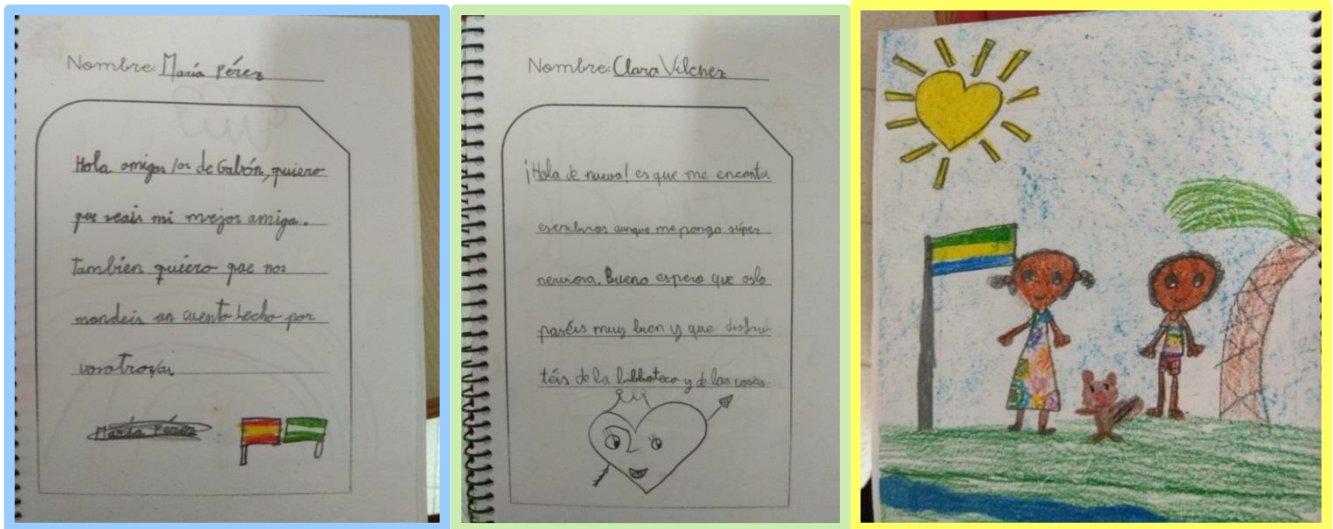 Nombre: María Pérez
Hola amigos/as de Gabón, quiero
que seais mi mejor amiga.
Tambien quiero que nos
mandeis un cuento hecho por
vosotros/as
María Pérez
Nombre: Clara Vilchez
¡Hola de nuevo! es que me encanta
escribiros aunque me pongo súper
nerviosa. Bueno espero que os lo
paséis muy bien y que disfru-
téis de la biblioteca y de las cosas.